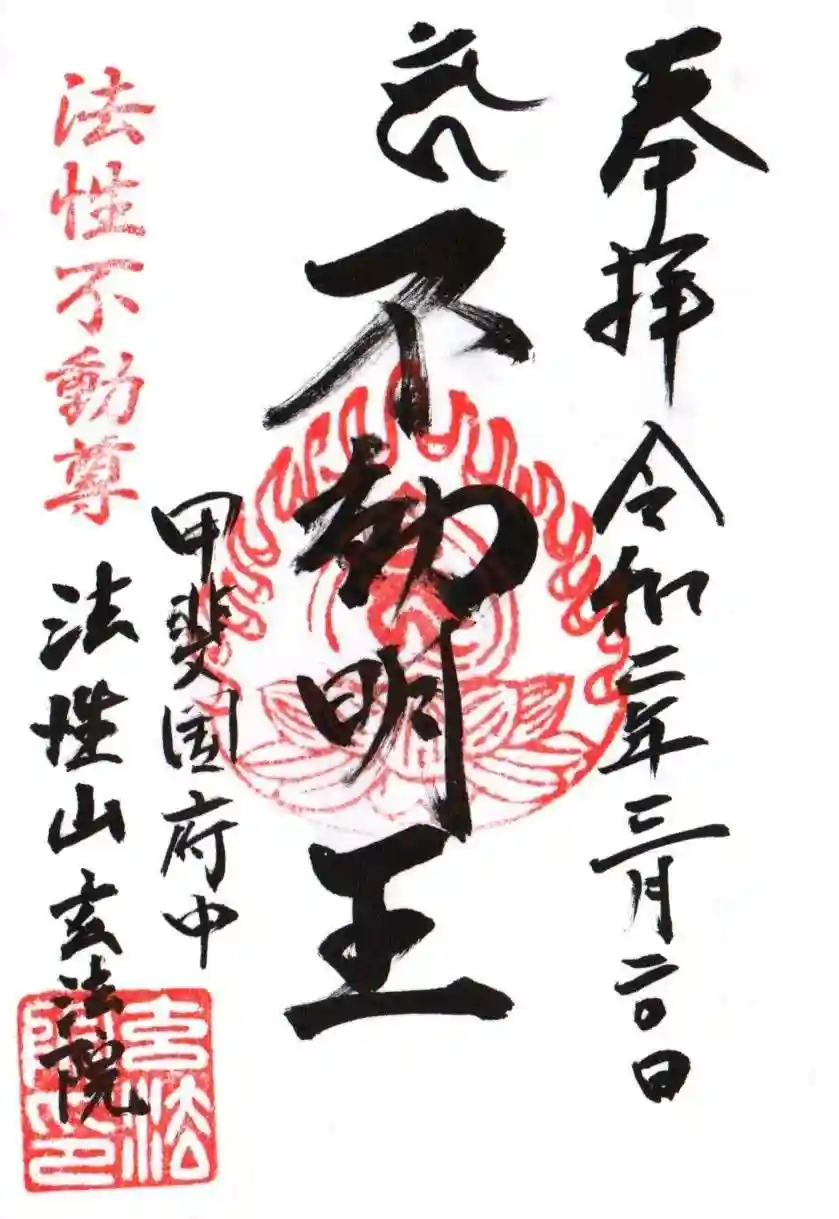 奉拝 令和二年三月二〇日
不動明王
甲斐国府中
法性不動尊
法性山玄法院
玄法院印